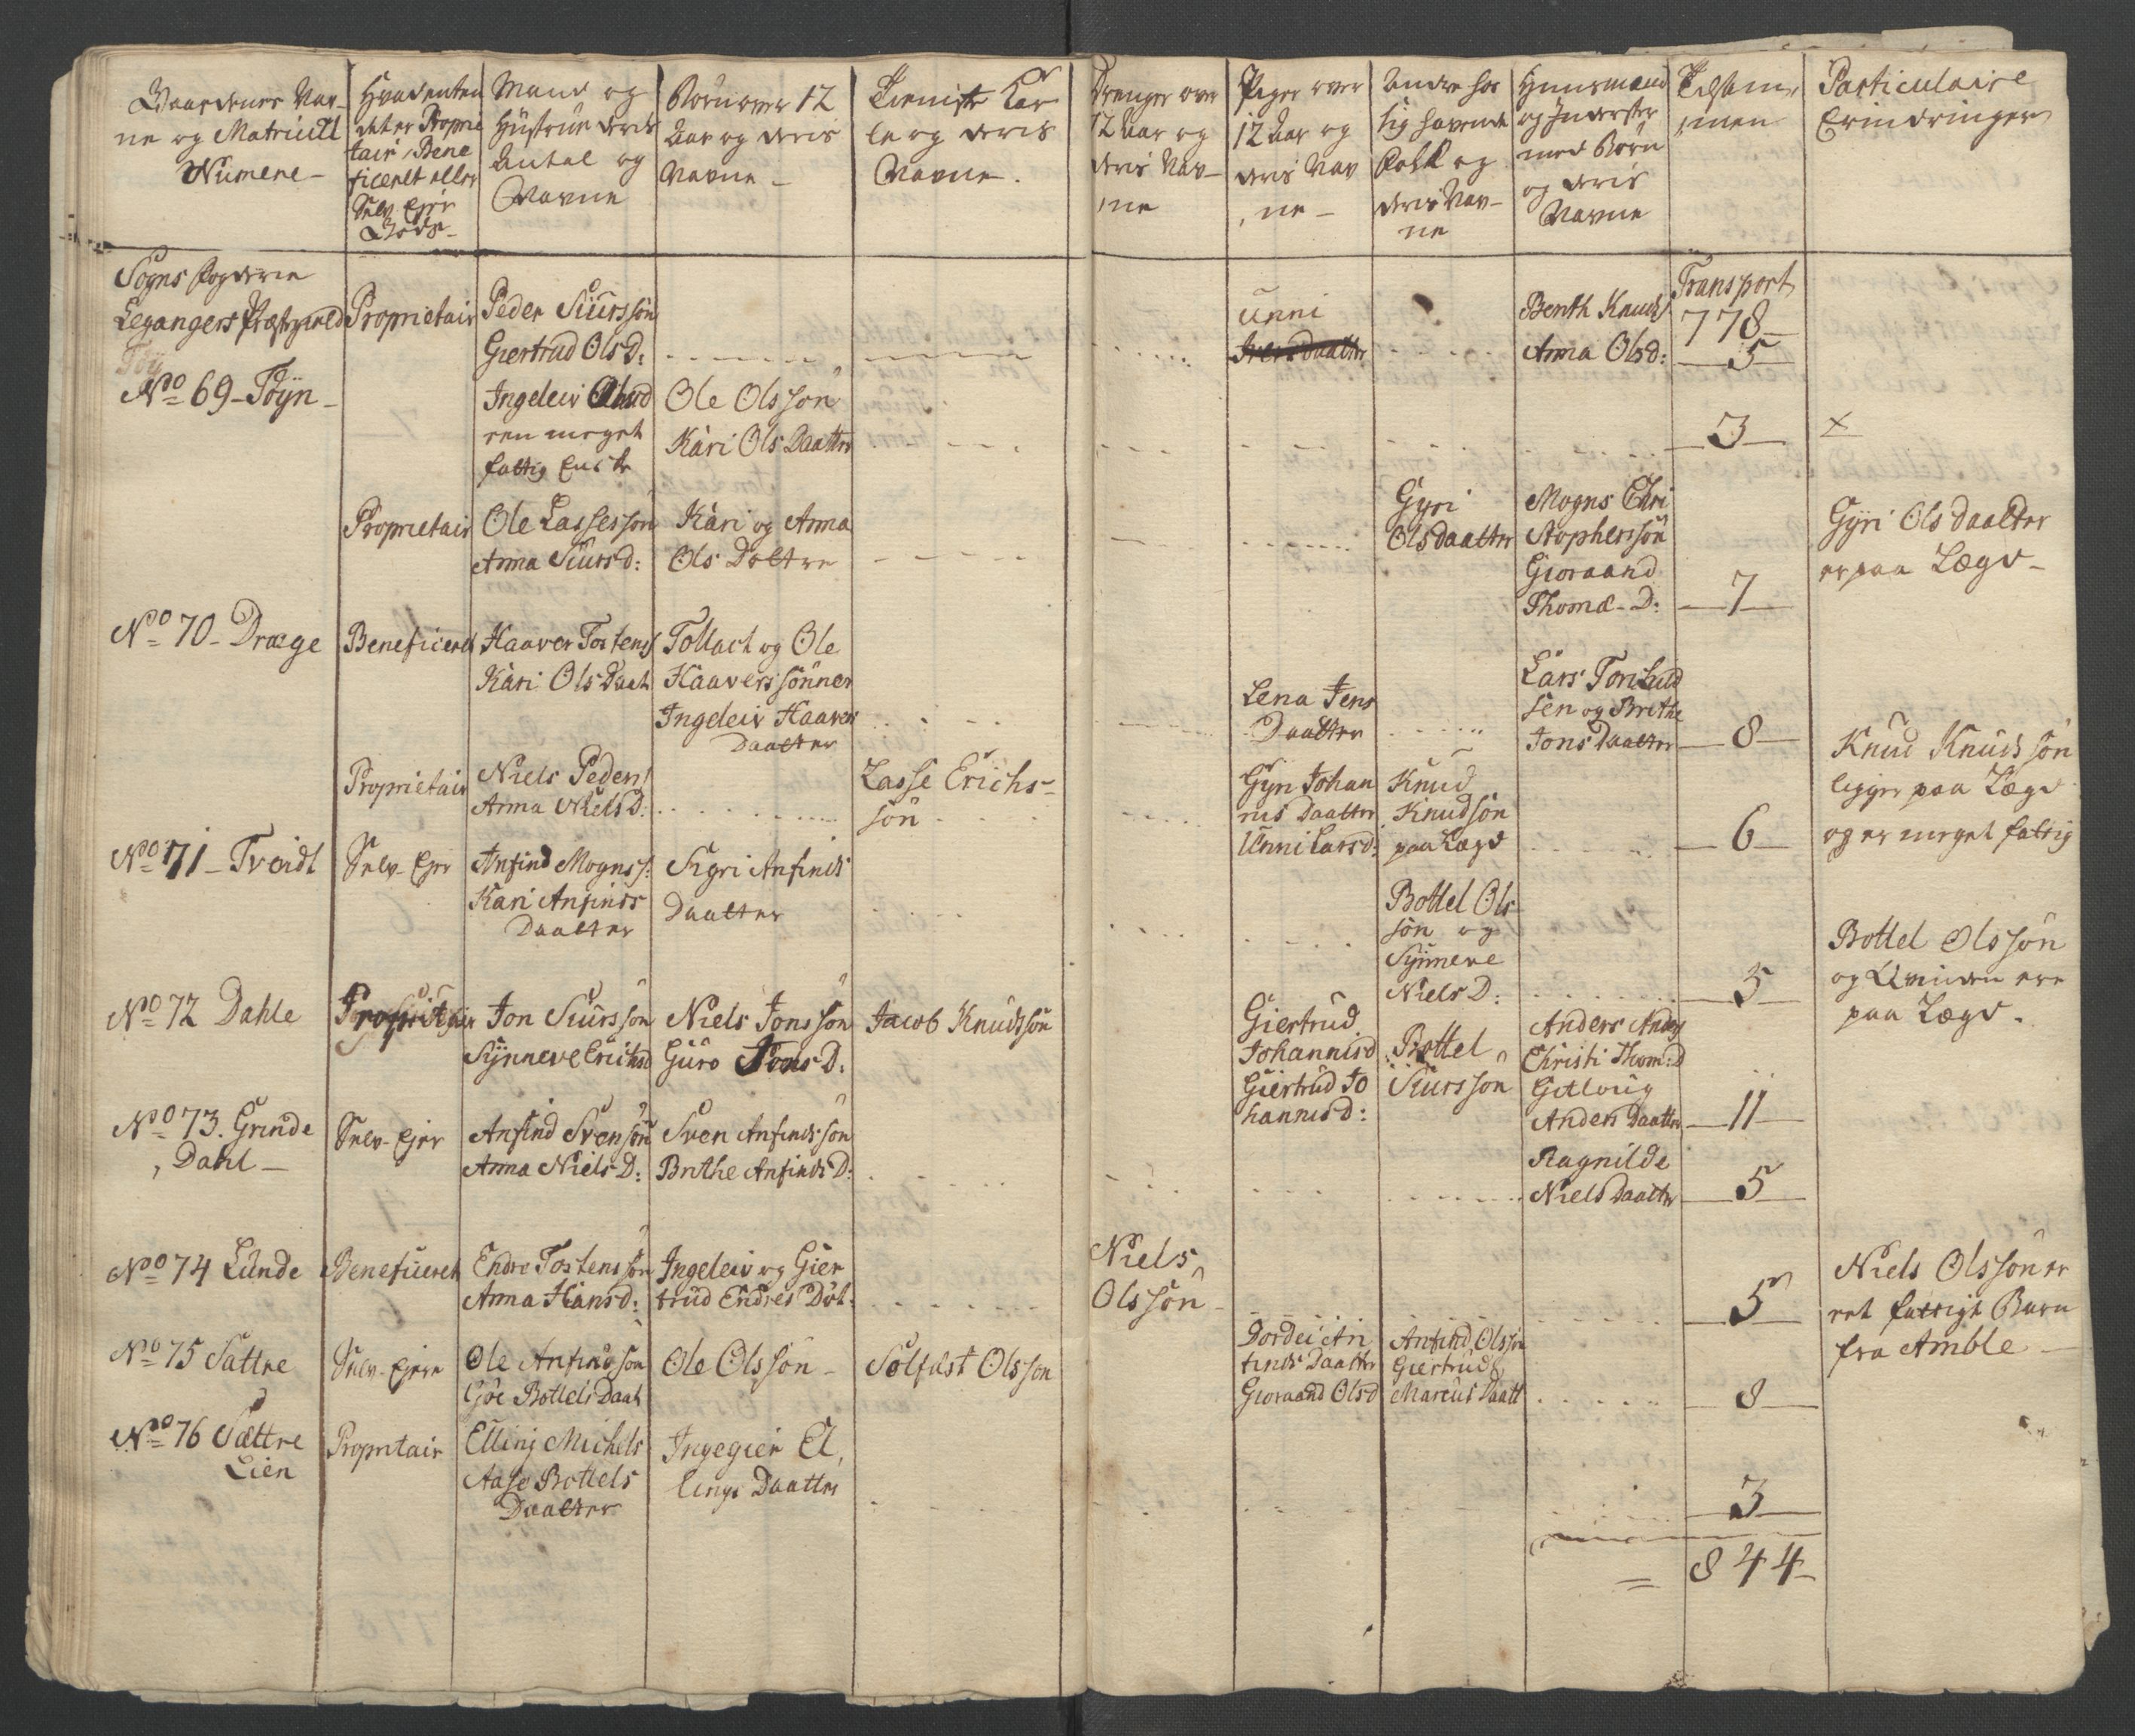 Gaardenes Nav-
ne og Matricül
Numere-
Hvad enten
det er Proprie
tair, Bene
ficeret eller
Selv Ejer
Gods-
Mand og
Hüstrue deris
Antal og
Navne
Børn over 12
Aar og deris
Navne-
Tieniste Kar
le og deris
Navne.
Drenger over
12 Aar og
deris Nav-
ne
Piger over
12 Aar og
deris Nav
ne-
Andre hos
sig havende
Folk og
deris Nav-
ne
Huusmænd
og Inderster
med Børn
og deris
Navne
Tilsam,
men
Particulaire
Erindringer
Sogns Fogderie
Leganger Præstegield
Proprietair
Peder Siürssøn
Giertrud Ols D:
Unni
Iversdaatter
Benth Knuds/
Anna Olsd:
Transport
778-
5
No 69-Tøyn-
Ingeleiv Olsd
een meget
fattig Encke
Ole Olssøn
Kari Ols Daatter
3
x
Proprietair
Ole Lassessøn
Anna Siursd:
Kari og Anna
Ols Døttre
Gyri
Olsdaatter
Mogns Chri
stopherssøn
Gioraand
Thomæ-D:
7
Gyri Olsdaatter
er paa Lægd-
No 70-Dræge
Beneficeret
Haaver Tostens/
Kari Ols Daat
Tollach og Ole
Haavers sønner
Ingeleiv Haavers
Daatter
Lena Jens
Daatter
Lars Torchild
sen og Brithe
Jons Daatter
8
Proprietair
Niels Peders/
Anna Niels D:
Lasse Erichs-
søn
Gyri Johan
nis Daatter
Unni Larsd:
Knud
Knudsøn
paa Lægd
6
Knud Knudssøn
ligger paa Lægd
og er meget fattig
No 71-Tveidt
Selv-Ejer
Anfind Mogns/:
Kari Anfinds
Daatter
Sigri Anfinds
Daatter
Bottel Ols
søn og
Synneve
Niels D:
5
Bottel Olssøn
og Qvinden ere
paa Lægd.
No 72 Dahle
Proprietair
Jon Siürssøn
Synneve Erichsd
Niels Jonssøn
Guro Jons D:
Jacob Knudssøn
Giertrud
Johannisd
Giertrud Jo
hannisd:
Bottel
Siurssøn
Anders Anders/
Christi Thom:D
Gutloug
Anders Daatter
11
No 73. Grinde
Dahl-
Selv-Ejer
Anfind Svensøn
Anna Niels D:
Sven Anfindssøn
Brithe Anfinds D:
Ragnilde
Niels Daatter
5
No 74 Lunde
Beneficeret
Endre Tostenssøn
Anna Hansd:
Ingeleiv og Gier
trud Endres Døt:
Niels
Olssøn-
5
Niels Olssøn er
eet fattigt Barn
fra Amble-
No 75 Sattre
Selv-Ejere
Ole Anfindssøn
Giøe Bottels Daat
Ole Olssøn-
Solfæst Olsson
Dordei An
finds Daatter
Gioraand Olsd
Anfind Olssøn
Giertrud
Marcus Daatt
8
No 76 Sættre
Lien
Propritair
Elling Michels
Aase Bottels
Daatter
Ingegier El,
lings Daatter
3
= 844-